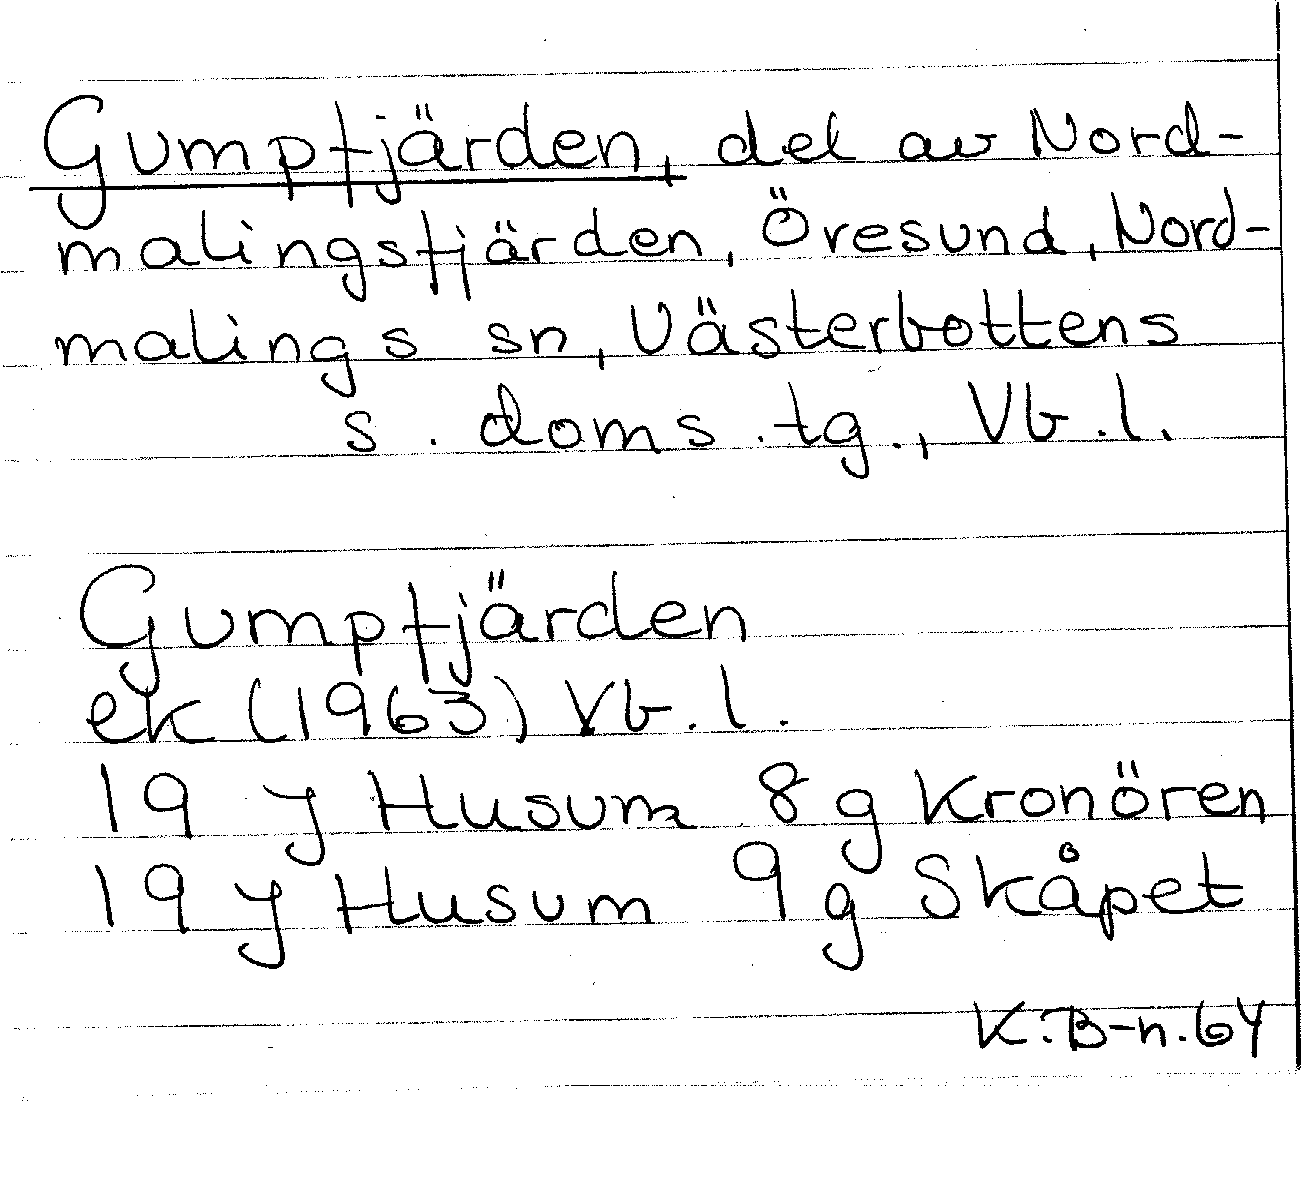 Gumpfjärden, del av Nord-
malingsfjärden, Öresund, Nord-
malings sn, Västerbottens
s. doms.tg., Vb.l.
Gumpfjärden
ek (1963) Vb.l.
19 J Husum 8g Kronören
19 J Husum 9g Skåpet
K.B-n.64